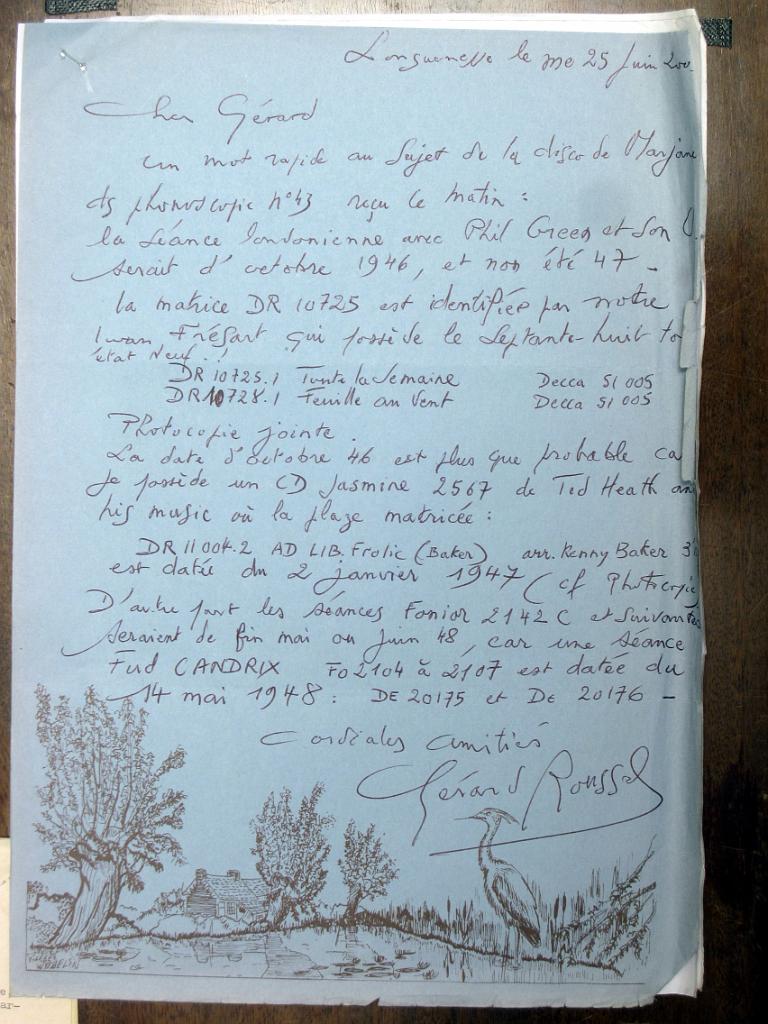 Longuenesse le me 25 Juin
Cher Gérard
un mot rapide au Sujet de la disco de Marjane
ds phonoscopie n°43 reçu ce matin :
la Séance londonienne avec Phil Green et Son O.
serait d'octobre 1946, et non été 47 -
la matrice DR 10725 est identifiée par notre
Iwan Frésart qui possède le Septante-huit to
état neuf !
DR 10725.1 Toute la Semaine Decca SI 005
DR 10728.1 Feuille au Vent Decca SI 005
Photocopie jointe.
La date d'octobre 46 est plus que probable ca
Je possède un CD Jasmine 2567 de Ted Heath an
his music où la plage matricée :
DR 11004.2 AD LIB. Frolic (Baker) arr. Kenny Baker 3'
est datée du 2 janvier 1947 (cf Photocopie
D'autre part les séances Fonior 2142 C et Suivantes
seraient de fin mai ou Juin 48, car une Séance
Fud CANDRIX FO2104 à 2107 est datée du
14 mai 1948 : DE 20175 et DE 20176 -
Cordiales amitiés
Gérard Roussel
e
ar-